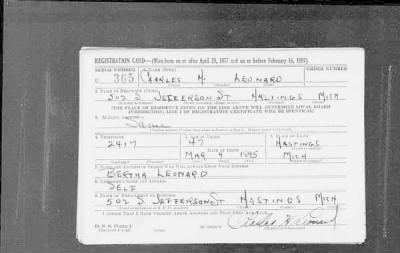 REGISTRATION CARD—(Men born on or after April 28, 1877 and on or before February 16, 1897)
SERIAL NUMBER
1. NAME (Print)
365 CHARLES H. LEONARD
2. PLACE OF RESIDENCE (Print)
502 S JEFFERSON ST HASTINGS MICH
[THE PLACE OF RESIDENCE GIVEN ON THE LINE ABOVE WILL DETERMINE LOCAL BOARD
JURISDICTION; LINE 2 OF REGISTRATION CERTIFICATE WILL BE IDENTICAL]
3. MAILING ADDRESS
Same
4. TELEPHONE
5. AGE IN YEARS
6. PLACE OF BIRTH
2417 47 HASTINGS
DATE OF BIRTH
MAR 4 1895 MICH
BERTHA LEONARD
8. EMPLOYER'S NAME AND ADDRESS
SELF
502 S JEFFERSON ST HASTINGS MICH
I AFFIRM THAT I HAVE VERIFIED ABOVE ANSWERS AND THAT THEY ARE TRUE.
Charles H Leonard